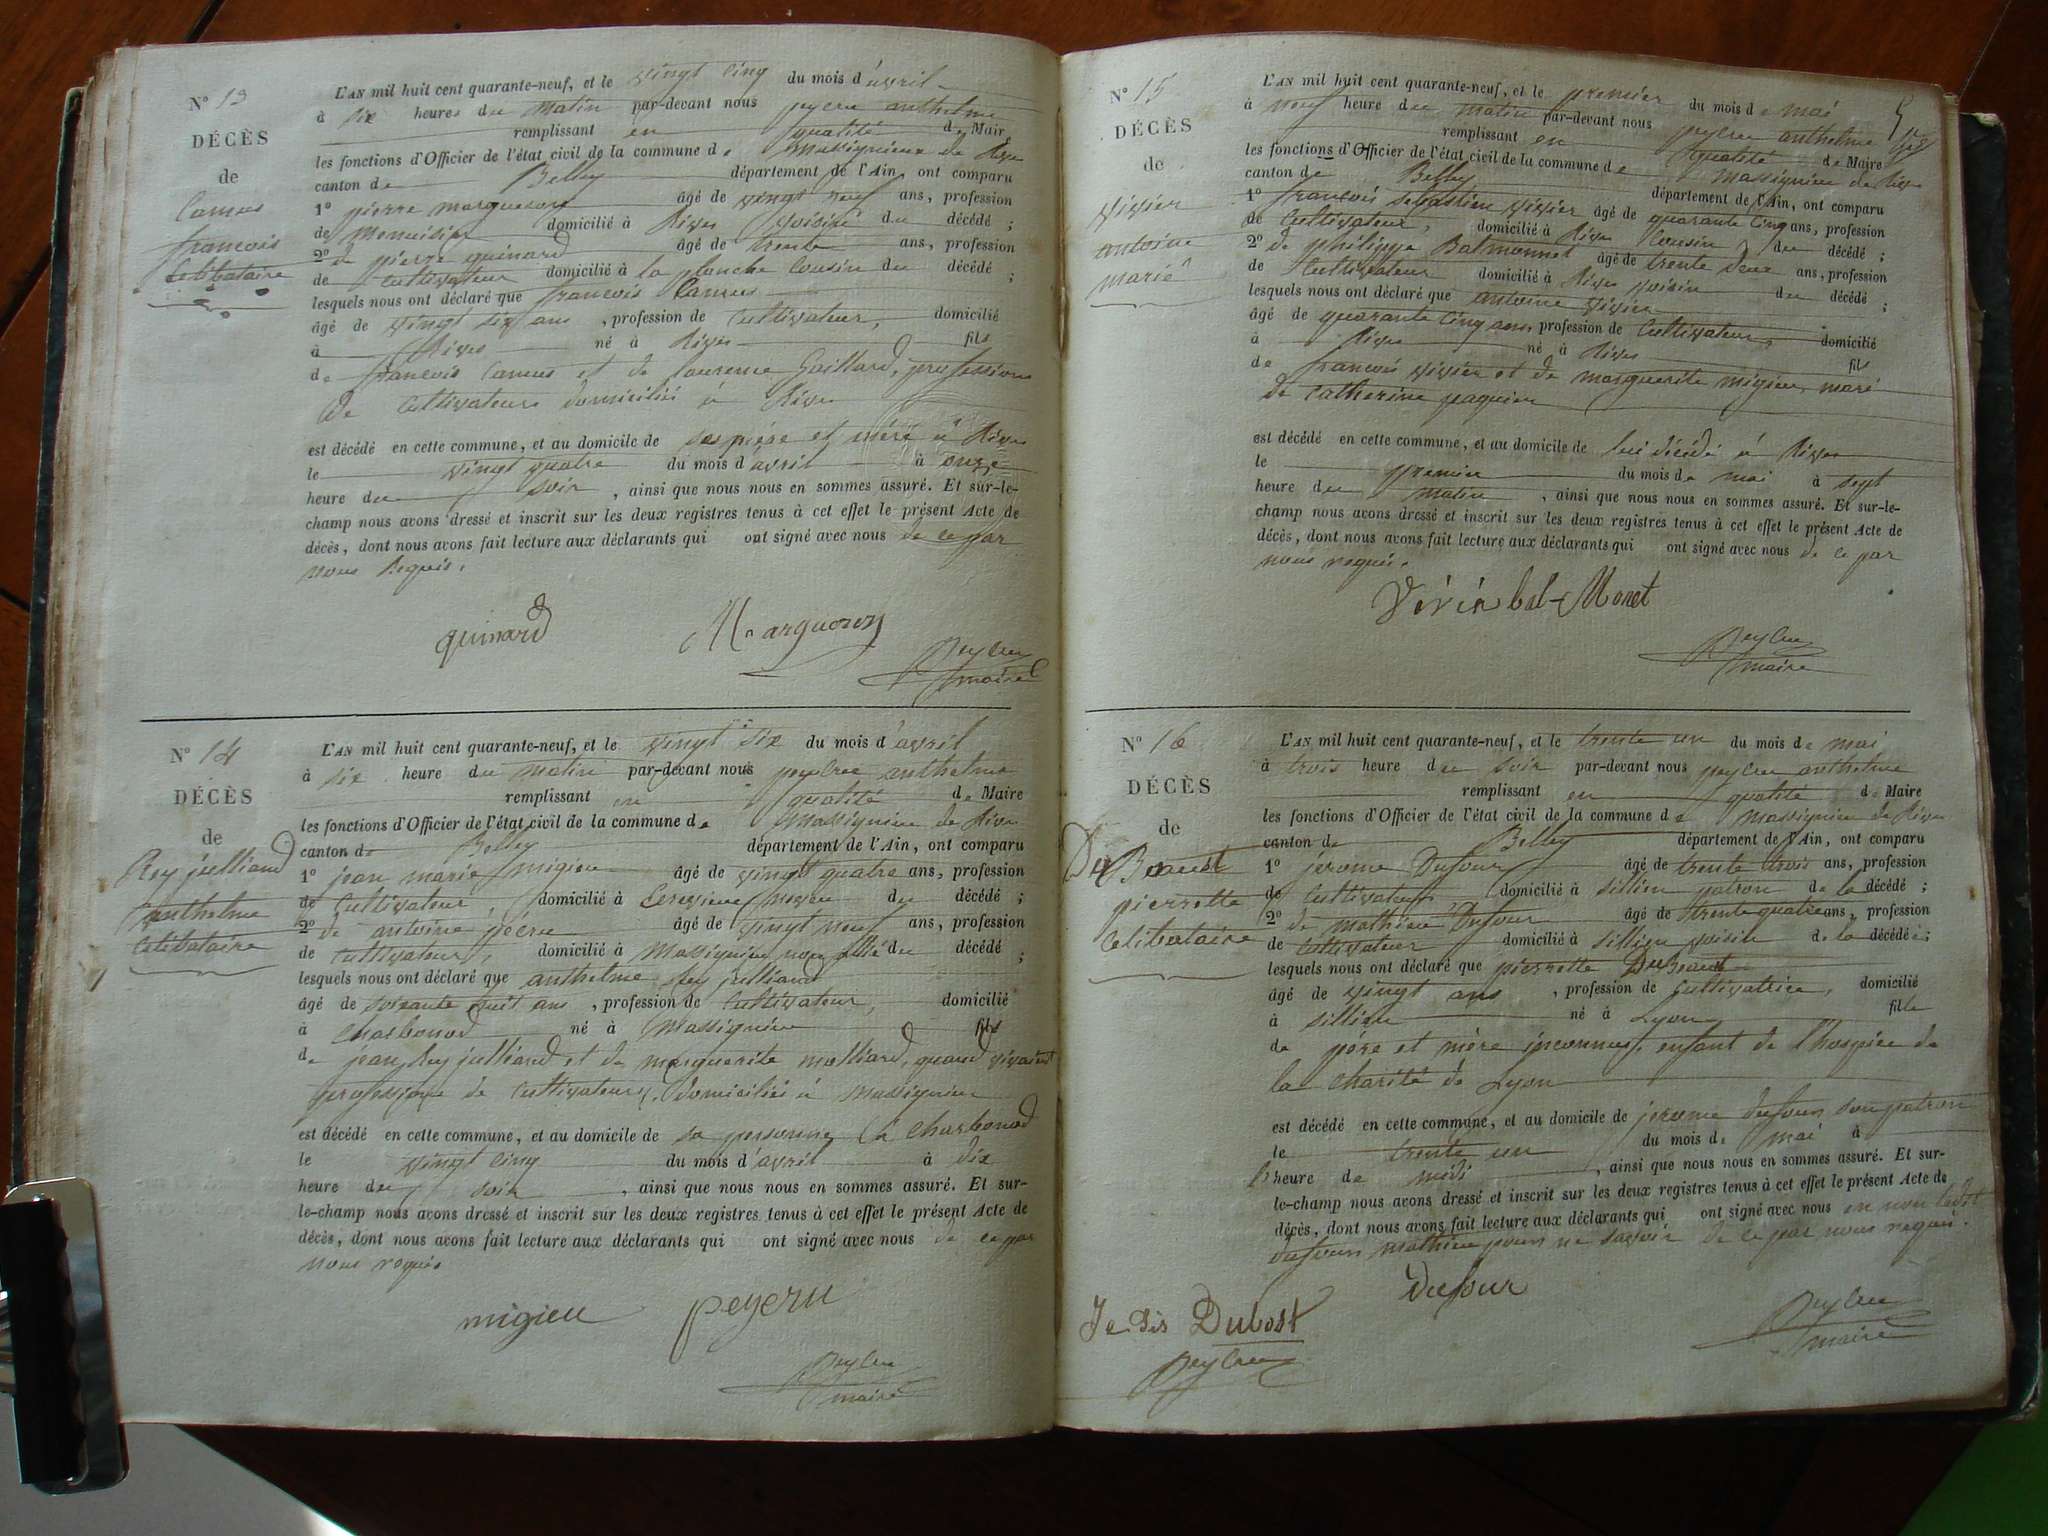 N° 13
DÉCÈS
de
Camus
francois
Celibataire
L'AN mil huit cent quarante-neuf, et le vingt cinq du mois d'avril
à six heures du matin par-devant nous peycru anthelme
remplissant en qualité de Mair
les fonctions d'Officier de l'état civil de la commune de Massignieu de Rives
canton de Belley département de l'Ain, ont comparu
1° pierre margueron âgé de vingt neuf ans, profession
de menuisier domicilié à Rives voisin du décédé ;
2° de pierre guinard âgé de trente ans, profession
de Cultivateur domicilié à la planche Cousin du décédé ;
lesquels nous ont déclaré que francois Camus
âgé de vingt six ans, profession de Cultivateur, domicilié
à Rives né à Rives fils
de francois Camus et de laurence Gaillard, profession
de Cultivateurs domiciliés à Rives
est décédé en cette commune, et au domicile de ses père et mère à Rives
le vingt quatre du mois d'avril à onze
heure du soir, ainsi que nous nous en sommes assuré. Et sur-le-
champ nous avons dressé et inscrit sur les deux registres tenus à cet effet le présent Acte de
décès, dont nous avons fait lecture aux déclarants qui ont signé avec nous de ce par
nous Requis.
guinard Marguoron
Peycru
maire
N° 14
DÉCÈS
de
Rey juilliand
anthelme
Celibataire
L'AN mil huit cent quarante-neuf, et le vingt six du mois d'avril
à six heure du matin par-devant nous peycru anthelme
remplissant en qualité de Maire
les fonctions d'Officier de l'état civil de la commune de Massignieu de Rives
canton de Belley département de l'Ain, ont comparu
1° jean marie migieu âgé de vingt quatre ans, profession
de Cultivateur, domicilié à du décédé ;
2° de antoine pécru âgé de vingt neuf ans, profession
de Cultivateur, domicilié à Massignieu non allié du décédé ;
lesquels nous ont déclaré que anthelme Rey juilliand
âgé de soixante huit ans, profession de Cultivateur, domicilié
à Charbonod né à Massignieu fils
de jean Rey juilliand et de marguerite molliard, quand vivaient
profession de Cultivateurs, domiciliés à Massignieu
est décédé en cette commune, et au domicile de sa personne à Charbonod
le vingt cinq du mois d'avril à dix
heure du soir, ainsi que nous nous en sommes assuré. Et sur-
le-champ nous avons dressé et inscrit sur les deux registres tenus à cet effet le présent Acte de
décès, dont nous avons fait lecture aux déclarants qui ont signé avec nous de ce par
nous requis
migieu peyeru
Peycru
maire
5
N° 15
DÉCÈS
de
Vivier
antoine
marié
L'AN mil huit cent quarante-neuf, et le premier du mois de mai
à neuf heure du matin par-devant nous peycru anthelme
remplissant en qualité de Maire
les fonctions d'Officier de l'état civil de la commune de Massignieu de Rives
canton de Belley département de l'Ain, ont comparu
1° francois sebastien vivier âgé de quarante cinq ans, profession
de Cultivateur, domicilié à Rives Cousin du décédé ;
2° de philippe Balmonnet âgé de trente deux ans, profession
de Cultivateur domicilié à Rives voisin du décédé ;
lesquels nous ont déclaré que antoine vivier
âgé de quarante cinq ans, profession de Cultivateur, domicilié
à Rives né à Rives fils
de francois vivier et de marguerite migieu, marié
de Catherine paquien
est décédé en cette commune, et au domicile de lui décédé à Rives
le premier du mois de mai à sept
heure du matin, ainsi que nous nous en sommes assuré. Et sur-le-
champ nous avons dressé et inscrit sur les deux registres tenus à cet effet le présent Acte de
décès, dont nous avons fait lecture aux déclarants qui ont signé avec nous de ce par
nous requis.
Vivié bal-Monet
Peycru
maire
N° 16
DÉCÈS
de
pierrette
Celibataire
L'AN mil huit cent quarante-neuf, et le trente un du mois de mai
à trois heure du soir par-devant nous peycru anthelme
remplissant en qualité de Maire
les fonctions d'Officier de l'état civil de la commune de Massignieu de Rives
canton de Belley département de l'Ain, ont comparu
1° jérome Dufour âgé de trente trois ans, profession
de Cultivateur domicilié à sillieu patron de la décédé ;
2° de mathieu Dufour âgé de trente quatre ans, profession
de Cultivateur domicilié à sillieu voisin de la décédé ;
lesquels nous ont déclaré que pierrette
âgé de vingt ans, profession de Cultivatrice, domicilié
à sillieu né à Lyon fille
de père et mère inconnus, enfant de l'hospice de
la Charité de Lyon
est décédé en cette commune, et au domicile de jerome dufour son patron
le trente un du mois de mai à
heure de midi, ainsi que nous nous en sommes assuré. Et sur-
le-champ nous avons dressé et inscrit sur les deux registres tenus à cet effet le présent Acte de
décès, dont nous avons fait lecture aux déclarants qui ont signé avec nous et non ledit
dufour mathieu pour ne savoir de ce par nous requis.
Je dis Dubost dufour
Peycru
Peycru
maire